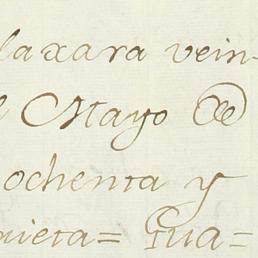 laxara vein-
l Mayo de
ochenta y
nieta= Gua=